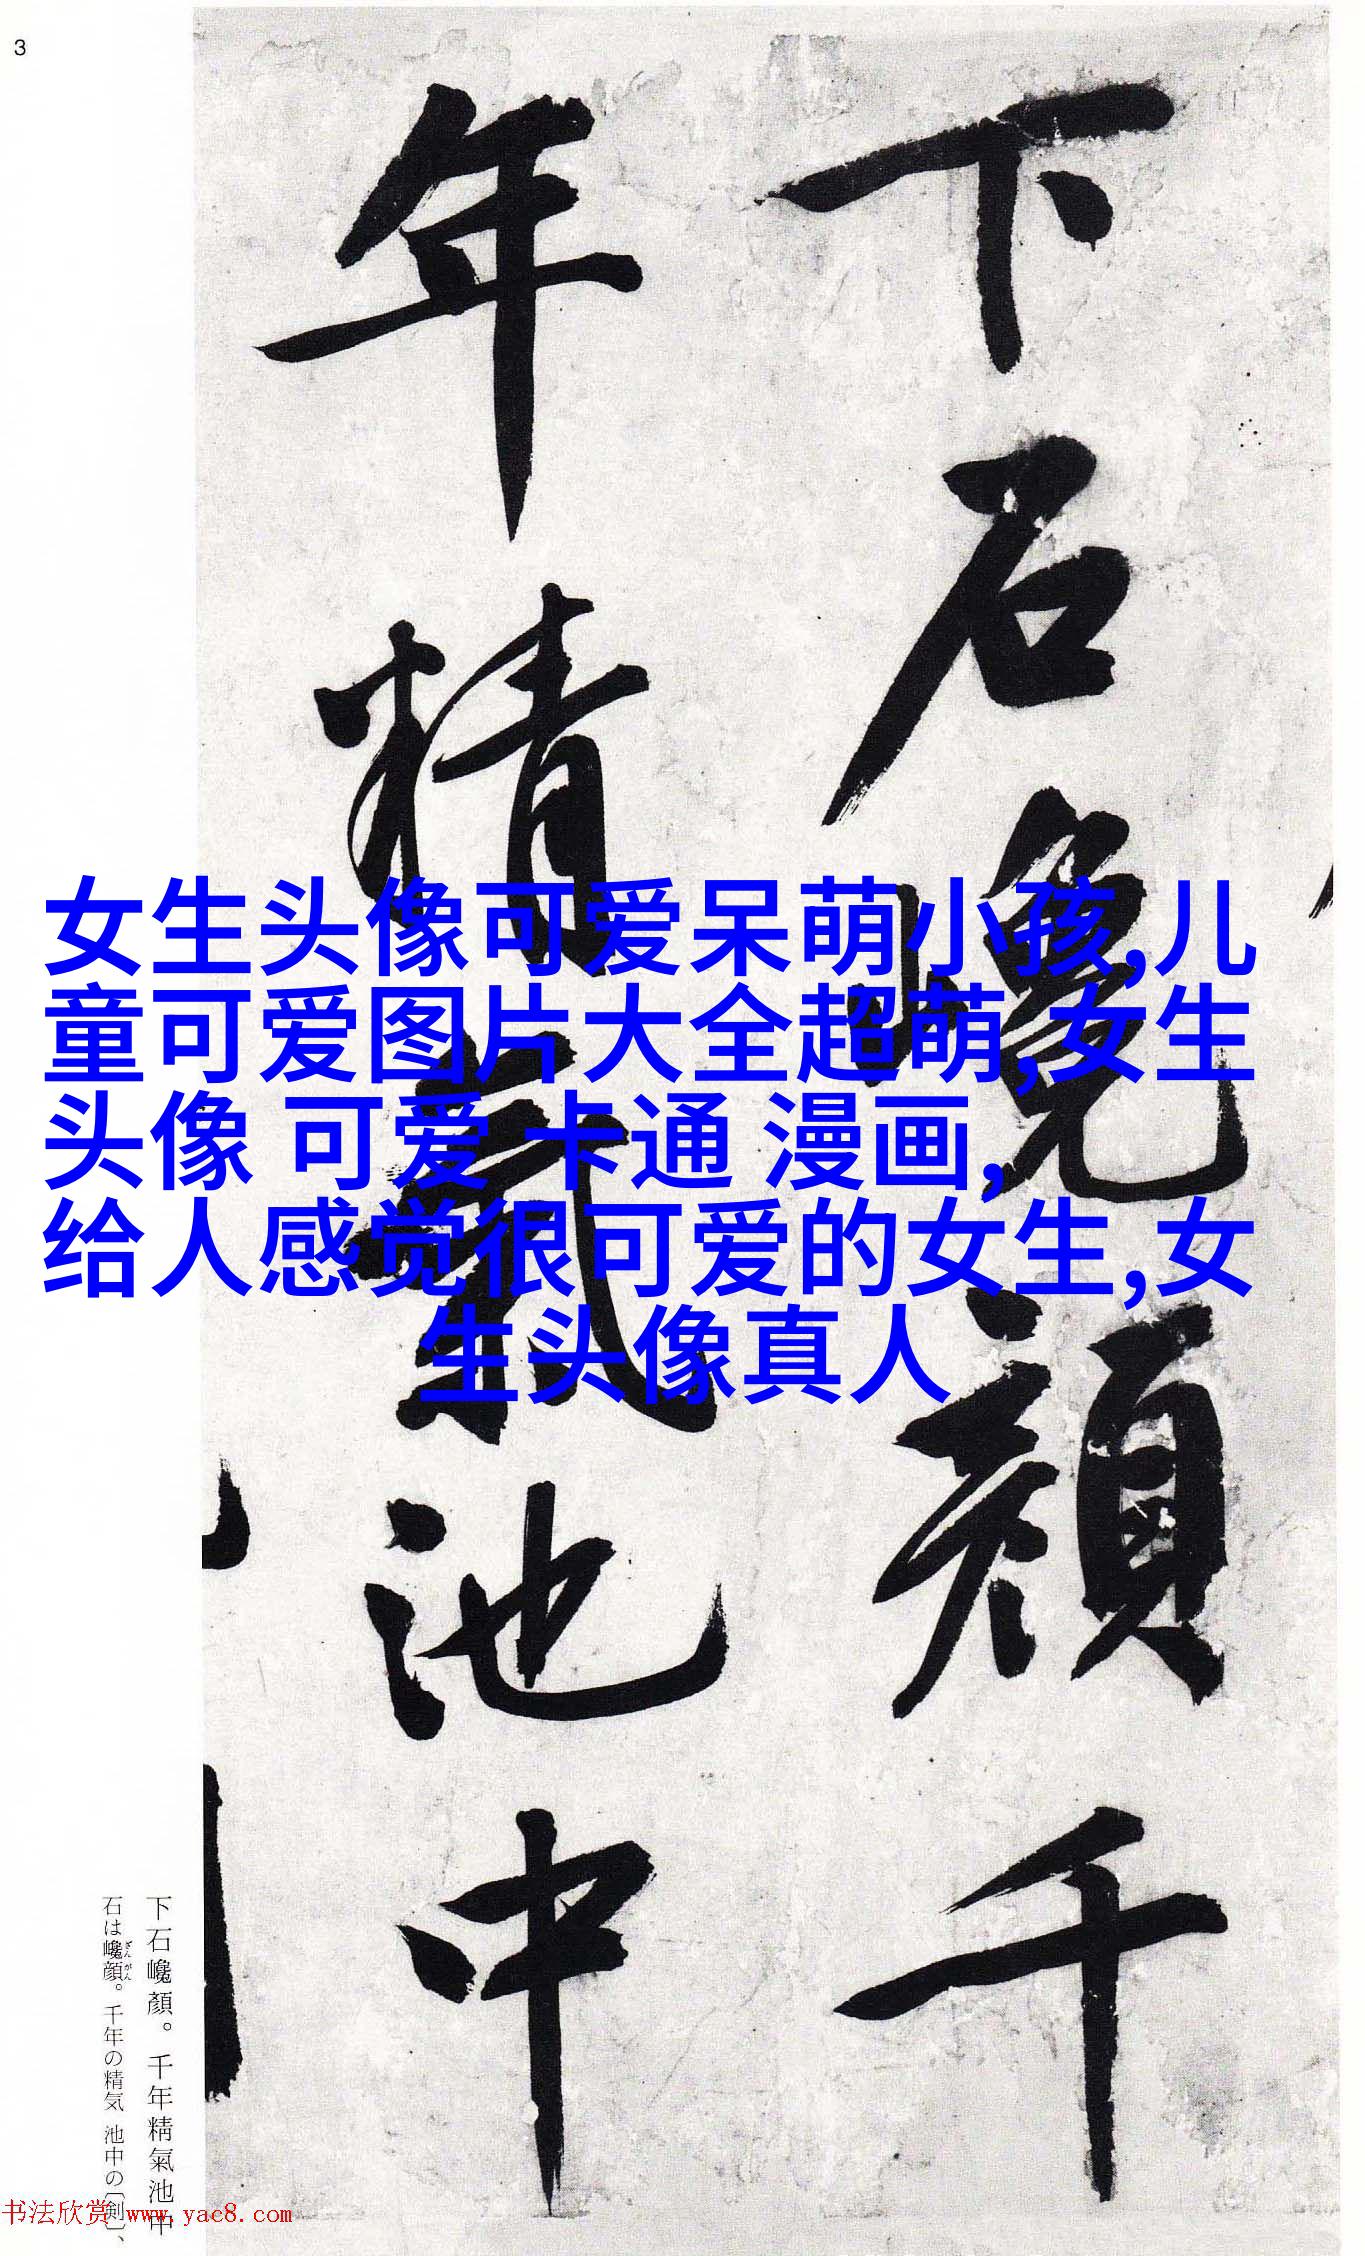 3
下石巉顏千
年精氣池中
女生头像可爱呆萌小孩,儿
童可爱图片大全超萌,女生
头像 可爱 卡通 漫画,
给人感觉很可爱的女生,女
生头像真人
下石巉顏。千年精氣池中
石は巉顔。千年の精気 池中の〔剣〕、
ざん がん
书法欣赏 www.yac8.com